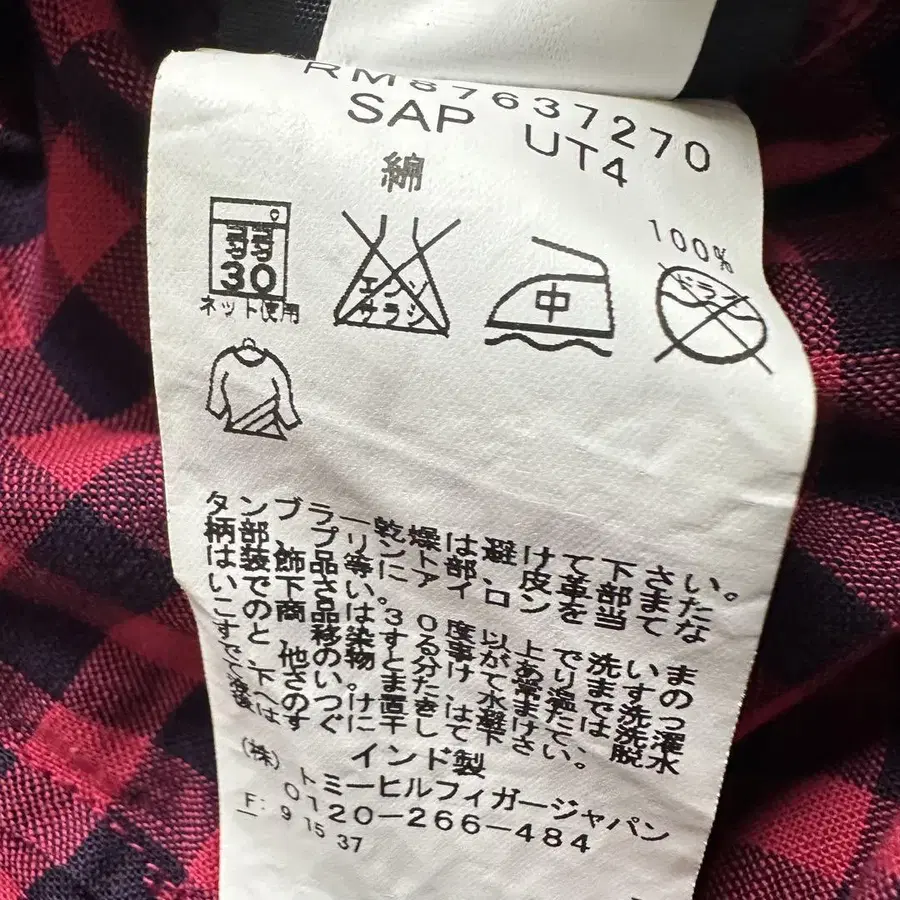 RM87637270
SAP UT4
綿 100%
弱
30
ネット使用
エンソ
サラシ
中
ドライ
タンブラー乾燥は避けて下さい。
柄部、プリント部、皮革部また
は装飾品等にアイロンを当てな
いで下さい。
この商品は30度以上で洗いま
すと、移染する事がありますの
で、他の物と分けて常温で洗っ
て下さい。また、水または洗濯
液へのつけ置きは避け、脱水
後はすぐに干して下さい。
インド製
(株) トミーヒルフィガージャパン
0120-266-484
F: 9 15 37